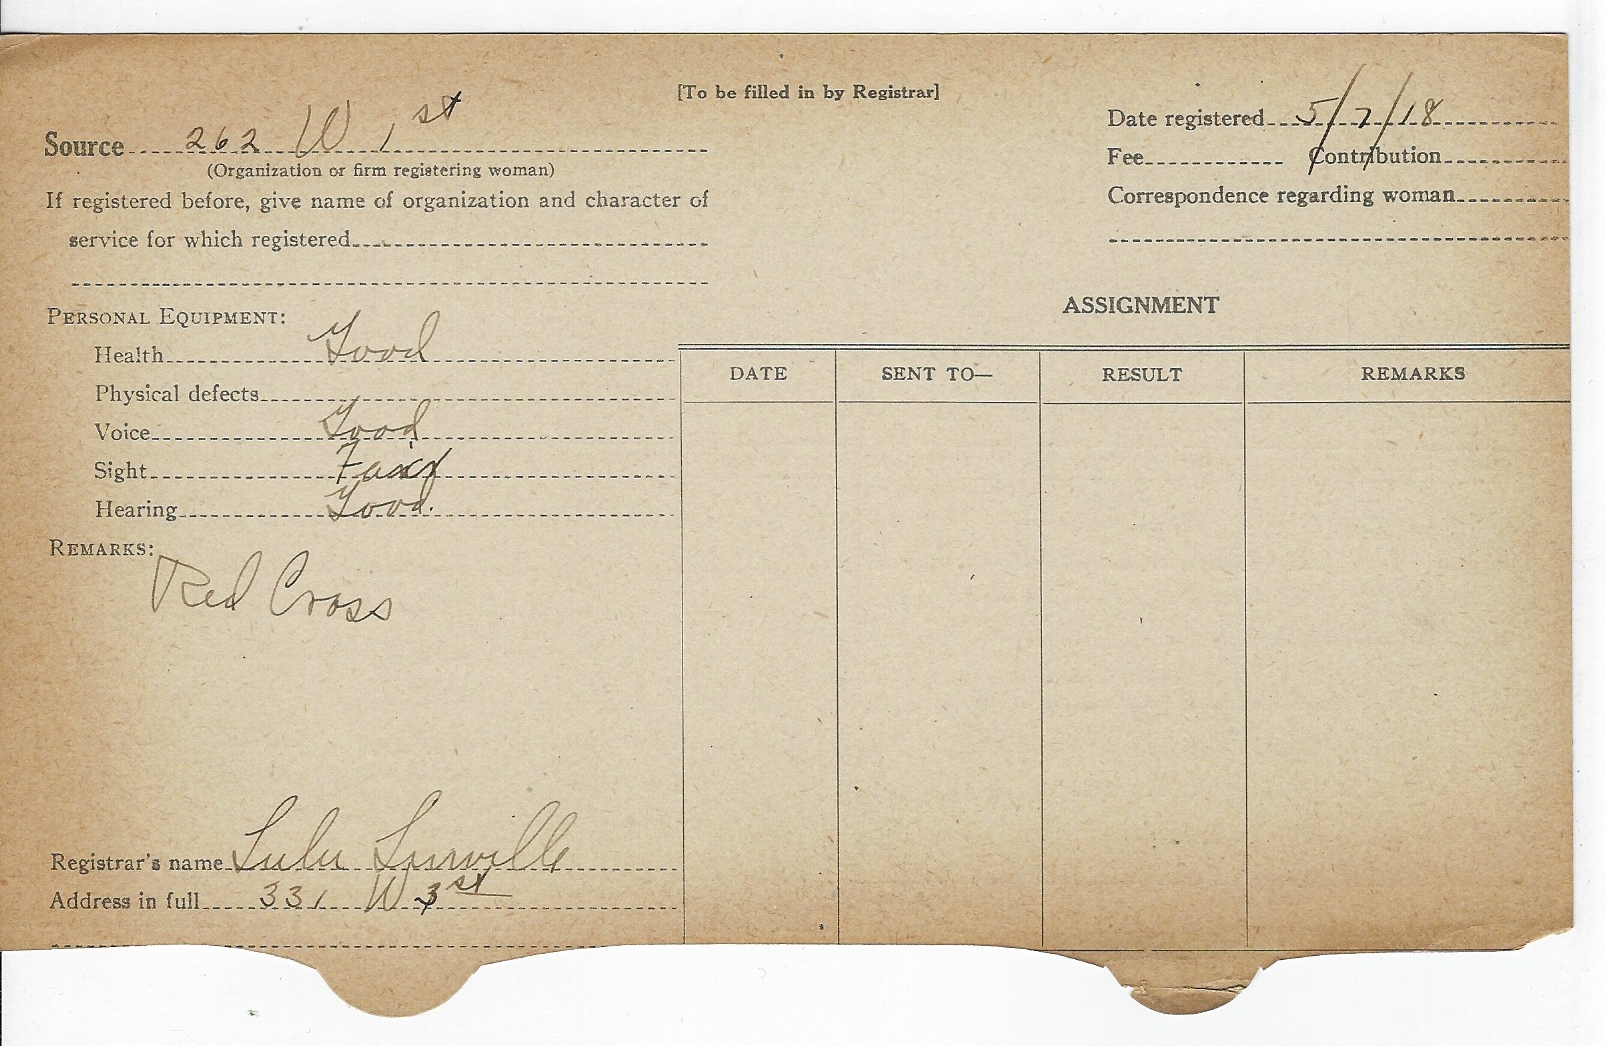 [To be filled in by Registrar]
Source 262 W 1st
(Organization or firm registering woman)
If registered before, give name of organization and character of
service for which registered
Date registered 5/7/18
Fee Contribution
Correspondence regarding woman
PERSONAL EQUIPMENT:
Health Good
Physical defects
Voice Good
Sight Fair
Hearing Good.
REMARKS:
Red Cross
Registrar's name Lulu Linville
Address in full 331 W 3st
ASSIGNMENT
DATE SENT TO— RESULT REMARKS